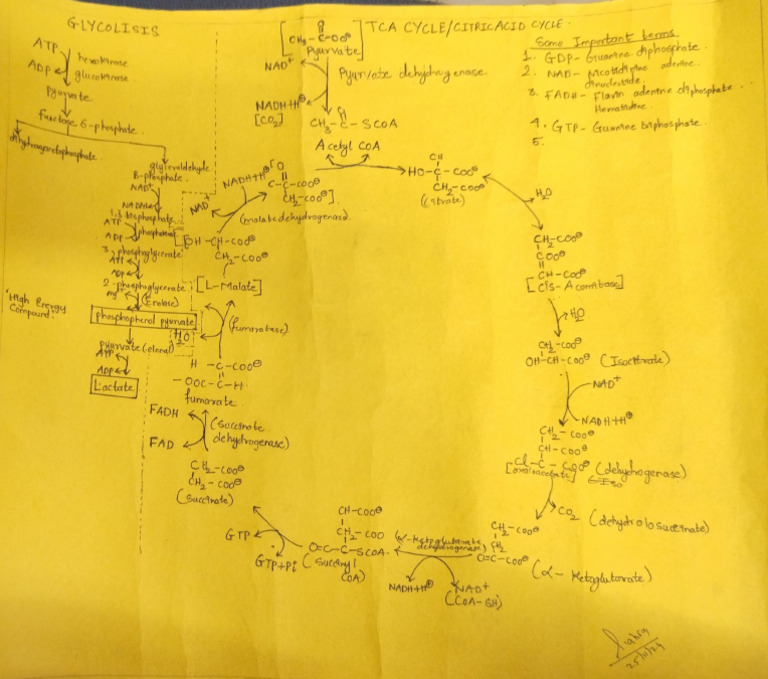 GLYCOLISIS
ATP
hexokinase
ADP
glucokinase
Pyruvate
fructose 6-phosphate
dihydroxyacetophosphate
glyceraldehyde
3-phosphate
NAD⁺
NADH+H
1,3 bisphosphate
ATP
phosphatase
ADP
3-phosphoglycerate
ATP
ADP
2-phosphoglycerate
Mg²⁺
(Enolase)
"High Energy
Compound"
phosphophenol pyruvate
pyurvate (elenal)
ATP
ADP
Lactate
TCA CYCLE/CITRIC ACID CYCLE.
O
CH₃-C-COO⊖
Pyurvate
NAD⁺
Pyurvate dehydrogenase
NADH+H⊕
[CO₂]
CH₃-C-SCOA
Acetyl COA
Some Important terms
1. GDP- Guanine diphosphate.
2. NAD- Nicotidinine adenine
dinucleotide.
3. FADH- Flavin adenine diphosphate
4. GTP- Guanine triphosphate.
5.
CH
HO-C-COO⊖
CH₂-COO⊖
(citrate)
H₂O
CH₂-COO⊖
C COO⊖
CH-COO⊖
[Cis-Aconitase]
H₂O
CH₂-COO⊖
OH-CH-COO⊖ (Isocitrate)
NAD⁺
NADH+H⊕
CH₂-COO⊖
CH-COO⊖
C-COO⊖
[oxaloacetate]
(dehydrogenase)
CO₂
(dehydrolosuccinate)
CH₂-COO⊖
CH₂
O=C-COO⊖
(α-Ketoglutarate)
(α-Ketoglutarate
dehydrogenase)
NADH+H⊕
NAD⁺
(COA-SH)
CH-COO⊖
CH₂-COO
O=C-C-SCOA.
(Succinyl
COA)
GTP
GTP+Pi
CH₂-COO⊖
CH₂-COO⊖
(Succinate)
FADH
(succinate
dehydrogenase)
FAD
H-C-COO⊖
-OOC-C-H
fumarate
H₂O
(fumaratase)
OH-CH-COO⊖
CH₂-COO⊖
[L-Malate]
NADH+H⊕
NAD⁺
(malate dehydrogenase)
O
C-C-COO⊖
CH₂-COO⊖]
25/10/24